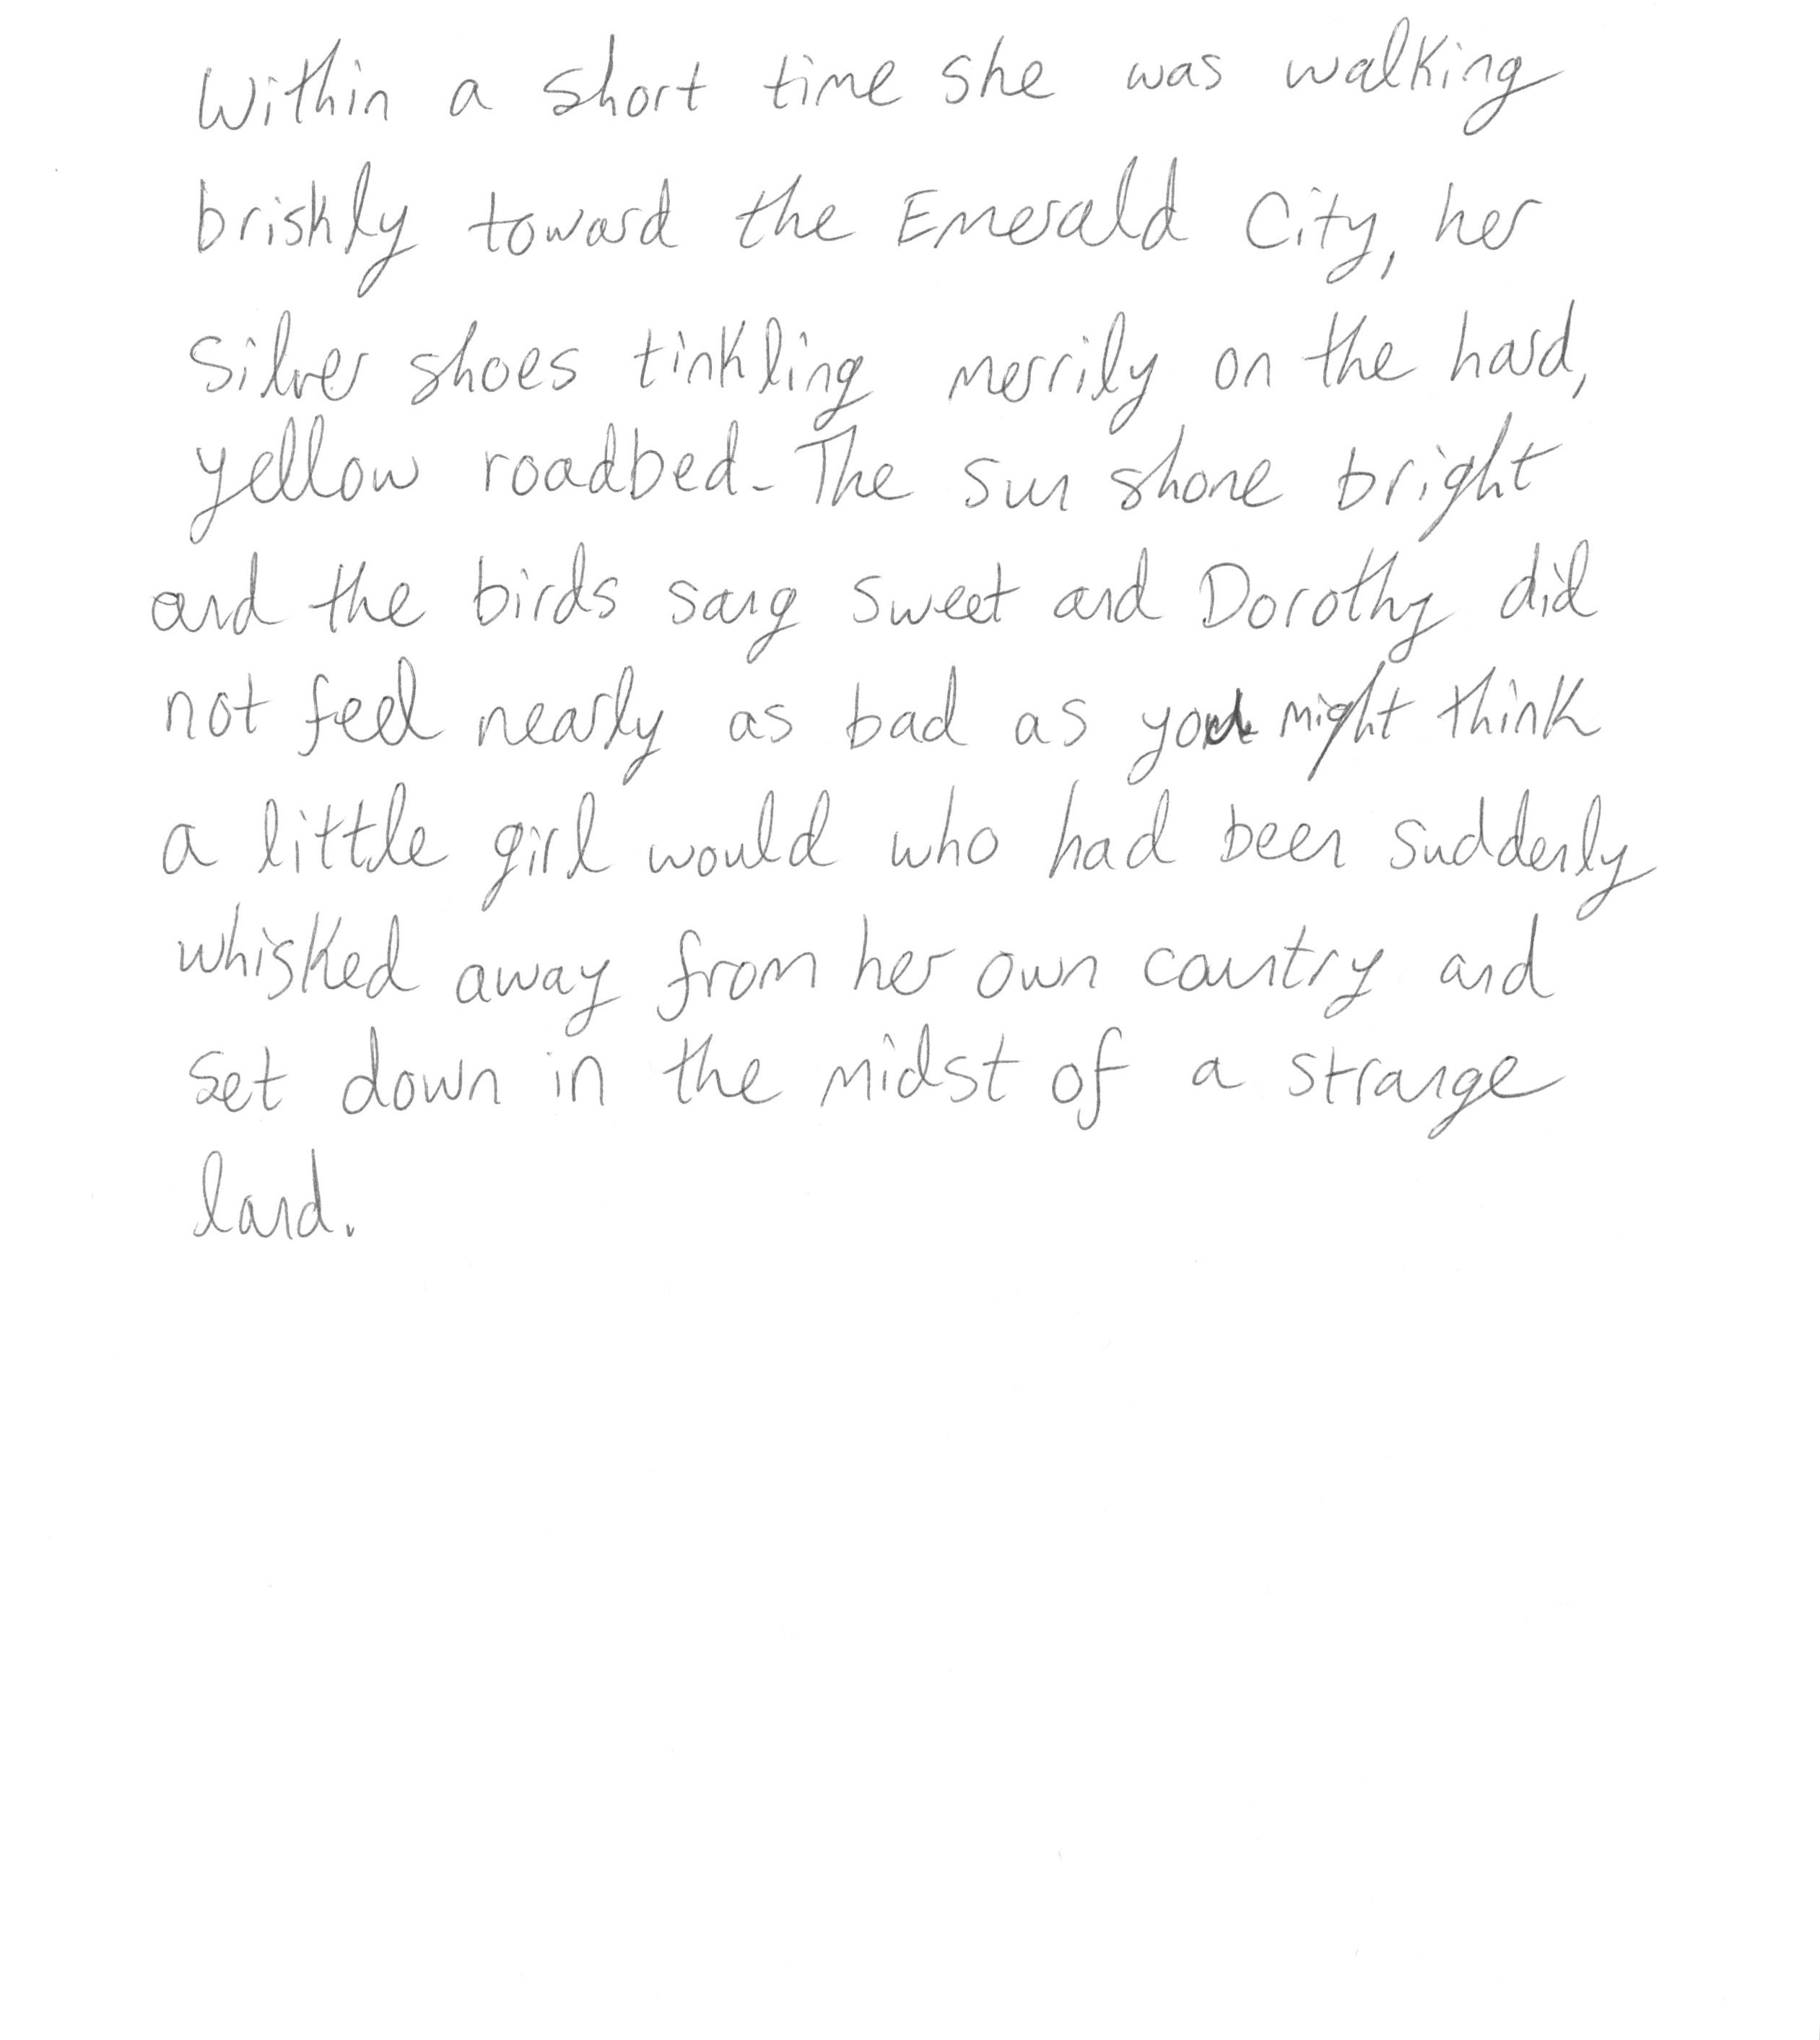 Within a short time she was walking
briskly toward the Emerald City, her
silver shoes tinkling merrily on the hard,
yellow roadbed. The sun shone bright
and the birds sang sweet and Dorothy did
not feel nearly as bad as you might think
a little girl would who had been suddenly
whisked away from her own country and
set down in the midst of a strange
land.